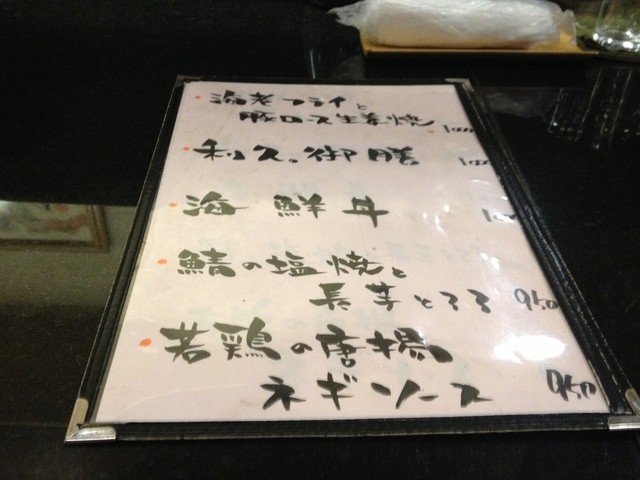 海老フライと
豚ロース生姜焼
利久御膳
海鮮丼
鯖の塩焼と
長芋とろろ 950
若鶏の唐揚
ネギソース 950